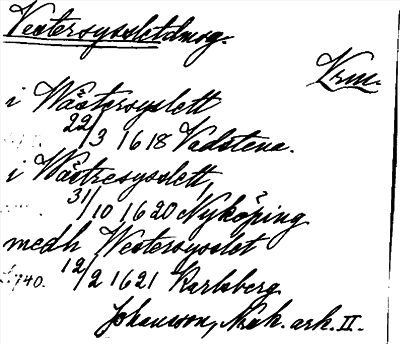 Vestersysslet dmog.
Vrm.
i Wästersyslett
22/3 1618 Vadstena.
i Wästresysslett,
31/10 1620 Nyköping
medh Vestersysslet
740. 12/2 1621 Karlsberg
Johansson, Noak. ark. II.